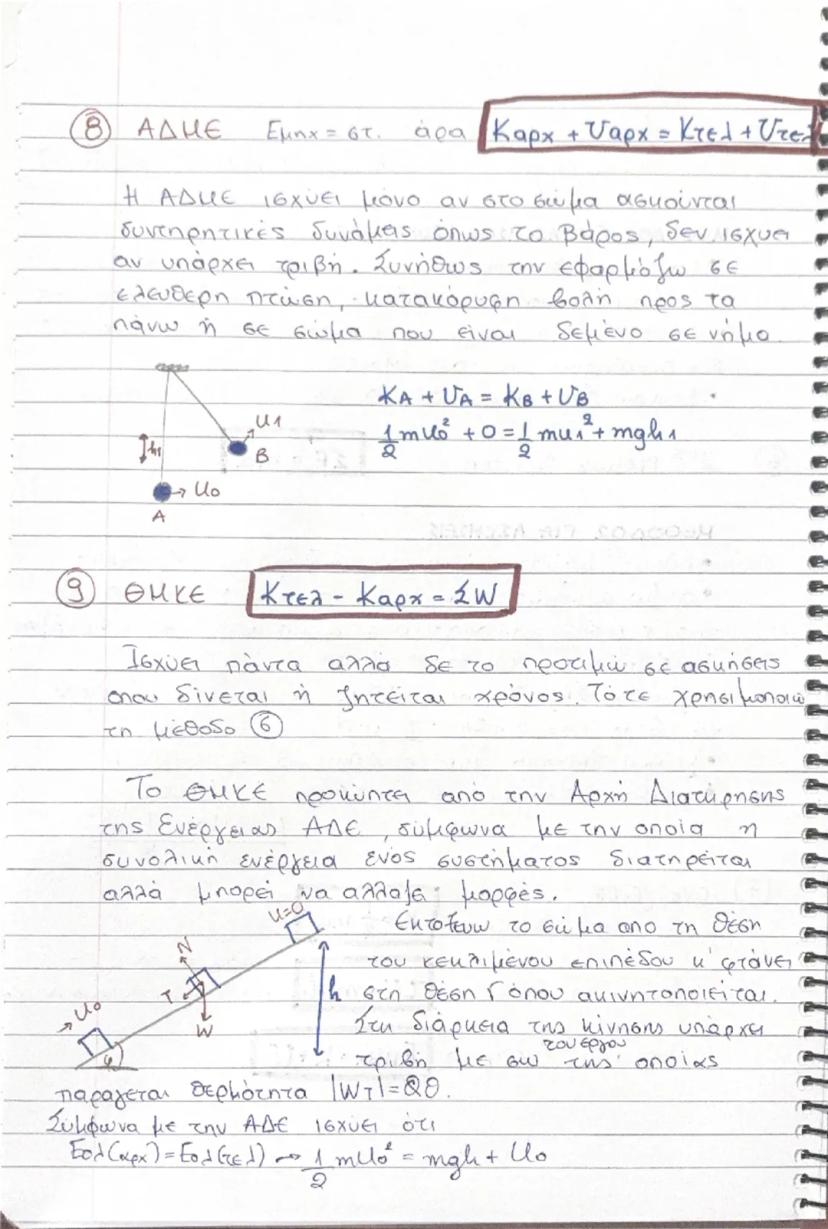 ⑧ ΑΔΜΕ Εμηχ = στ. άρα Καρχ + Uαρχ = Κτελ + Uτελ
Η ΑΔΜΕ ισχύει μόνο αν στο σώμα ασκούνται
συντηρητικές δυνάμεις όπως το βάρος, δεν ισχύει
αν υπάρχει τριβή. Συνήθως την εφαρμόζω σε
ελεύθερη πτώση, κατακόρυφη βολή προς τα
πάνω ή σε σώμα που είναι δεμένο σε νήμα
KA + UA = KB + UB
1/2 mυ0² + 0 = 1/2 mυ1² + mgh1
h1
υ1
B
υ0
A
⑨ ΘΜΚΕ Κτελ - Καρχ = ΣW
Ισχύει πάντα αλλά δε το προτιμώ σε ασκήσεις
οπου δίνεται ή ζητείται χρόνος. Τότε χρησιμοποιώ
τη μέθοδο ⑥
Το ΘΜΚΕ προκύπτει από την Αρχή Διατήρησης
της Ενέργειας ΑΔΕ, σύμφωνα με την οποία η
συνολική ενέργεια ενός συστήματος διατηρείται
αλλά μπορεί να αλλάξει μορφές.
υ=0
N
T
W
υ0
φ
h
Εκτοξεύω το σώμα απο τη θέση
του κεκλιμένου επιπέδου κ' φτάνει
στη θέση Γ όπου ακινητοποιείται.
Στη διάρκεια της κίνησης υπάρχει
τριβή με του έργου της οποίας
παράγεται θερμότητα |WT| = Qθ.
Σύμφωνα με την ΑΔΕ ισχύει ότι
Εολ(αρχ) = Εολ(τελ) → 1/2 mυ0² = mgh + υ0